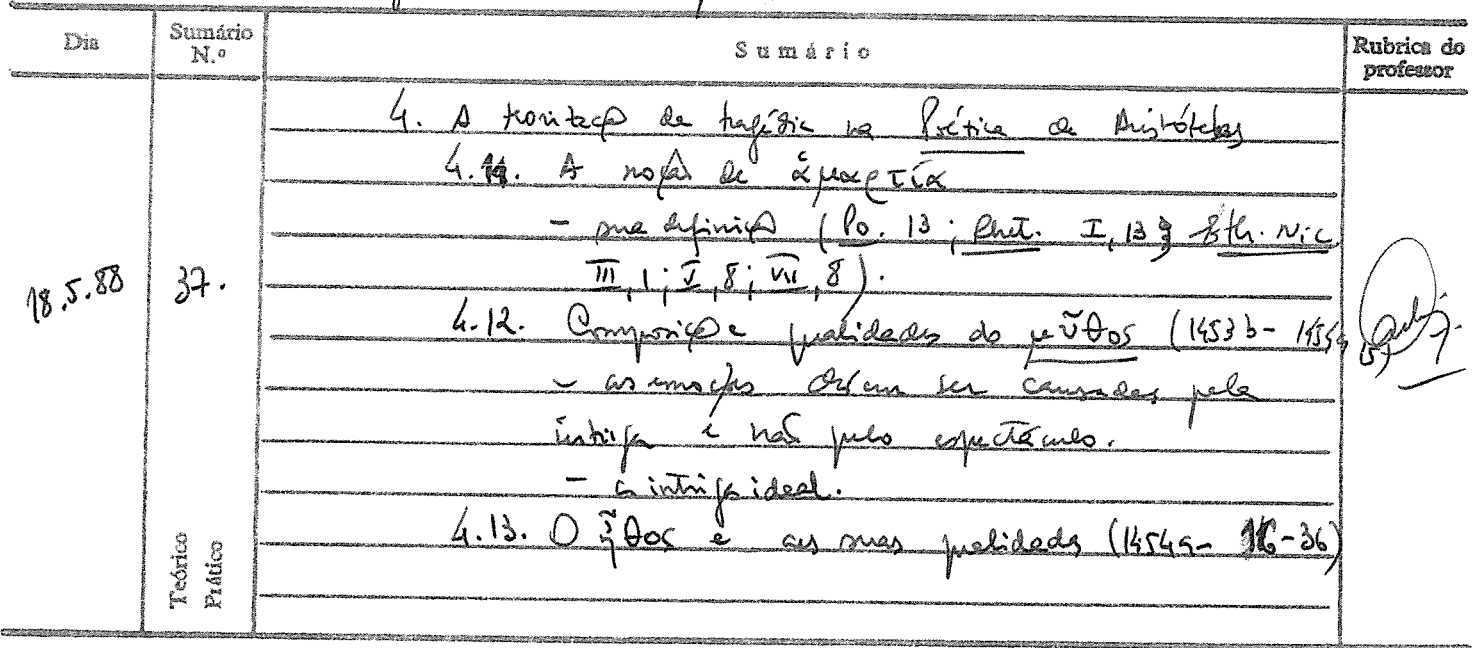 Dia
Sumário N.º
Sumário
Rubrica do professor
18.5.88
37.
4. A teorização da tragédia na Poética de Aristóteles
4.11. A noção de ἁμαρτία
- sua definição (Po. 13; Rhet. I, 13; Eth. Nic.
III, 1; V, 8; VII, 8).
4.12. Composição e qualidades do μῦθος (1453b - 1454a 15)
- as emoções devem ser causadas pela
intriga e não pelo espectáculo.
- a intriga ideal.
4.13. O ἦθος e as suas qualidades (1454a - 16-36)
Teórico
Prático